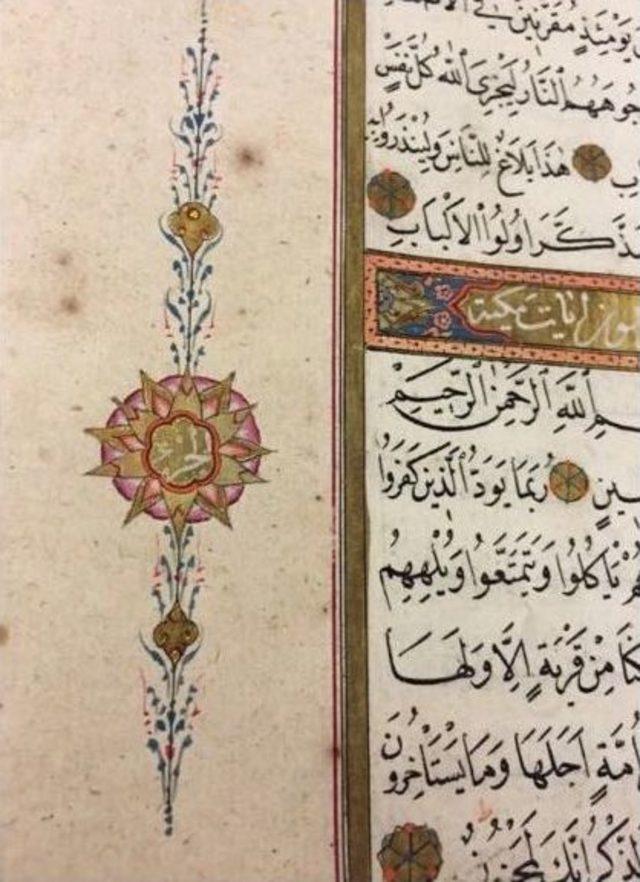 يَوْمَئِذٍ مُقَرَّنِينَ فِي
جُوهَهُمُ النَّارُ لِيَجْزِيَ اللهُ كُلَّ نَفْسٍ
هٰذَا بَلَاغٌ لِلنَّاسِ وَلِيُنْذَرُوا بِهِ
ذَّكَّرَ اُولُوا الْاَلْبَابِ
ايات مكية
مِ اللهِ الرَّحْمٰنِ الرَّحِيمِ
ينٍ رُبَمَا يَوَدُّ الَّذِينَ كَفَرُوا
هُمْ يَاْكُلُوا وَيَتَمَتَّعُوا وَيُلْهِهِمُ
كْنَا مِنْ قَرْيَةٍ اِلَّا وَلَهَا
اُمَّةٍ اَجَلَهَا وَمَا يَسْتَاْخِرُونَ
لذِّكْرُ اِنَّكَ لَمَجْنُونٌ